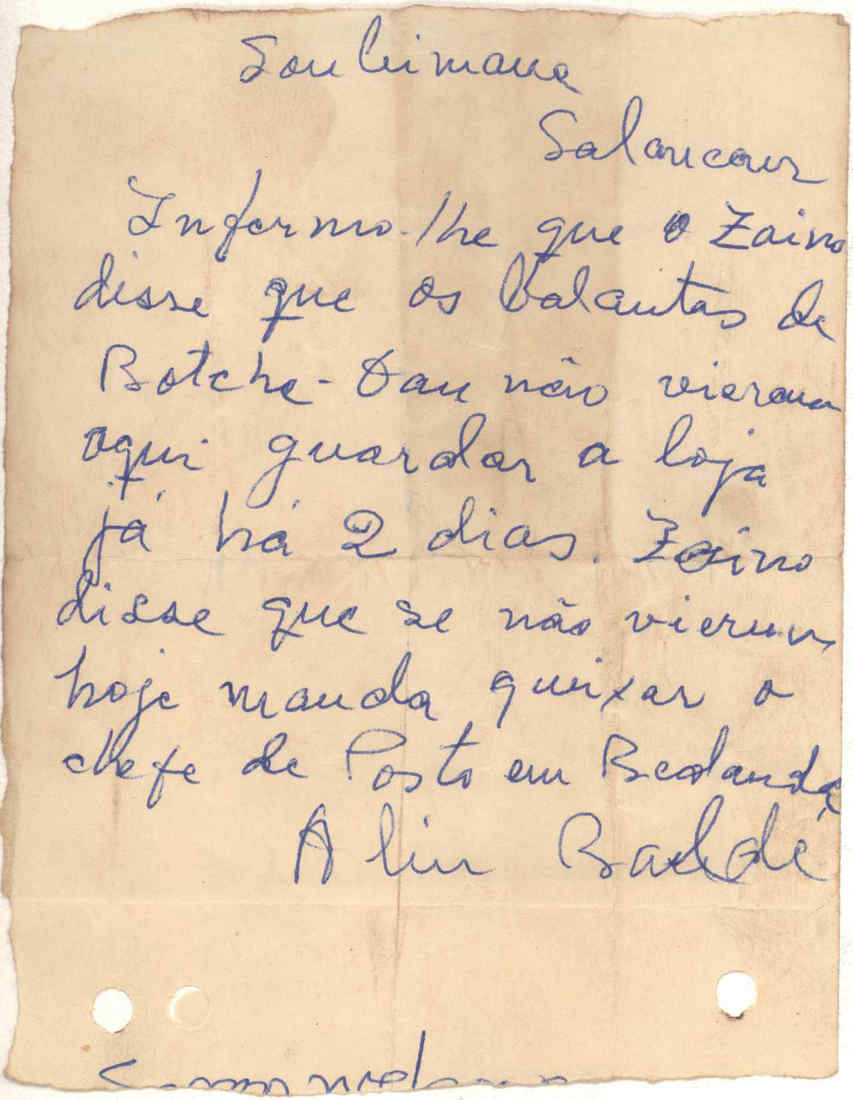 Souleimane
Salancaur
Informo-lhe que o Zaino
disse que os balantas de
Botche-Dau não vieram
aqui guardar a loja
já há 2 dias. Zaino
disse que se não vierem
hoje manda queixar o
chefe de Posto em Bedanda
Aliu Baldé